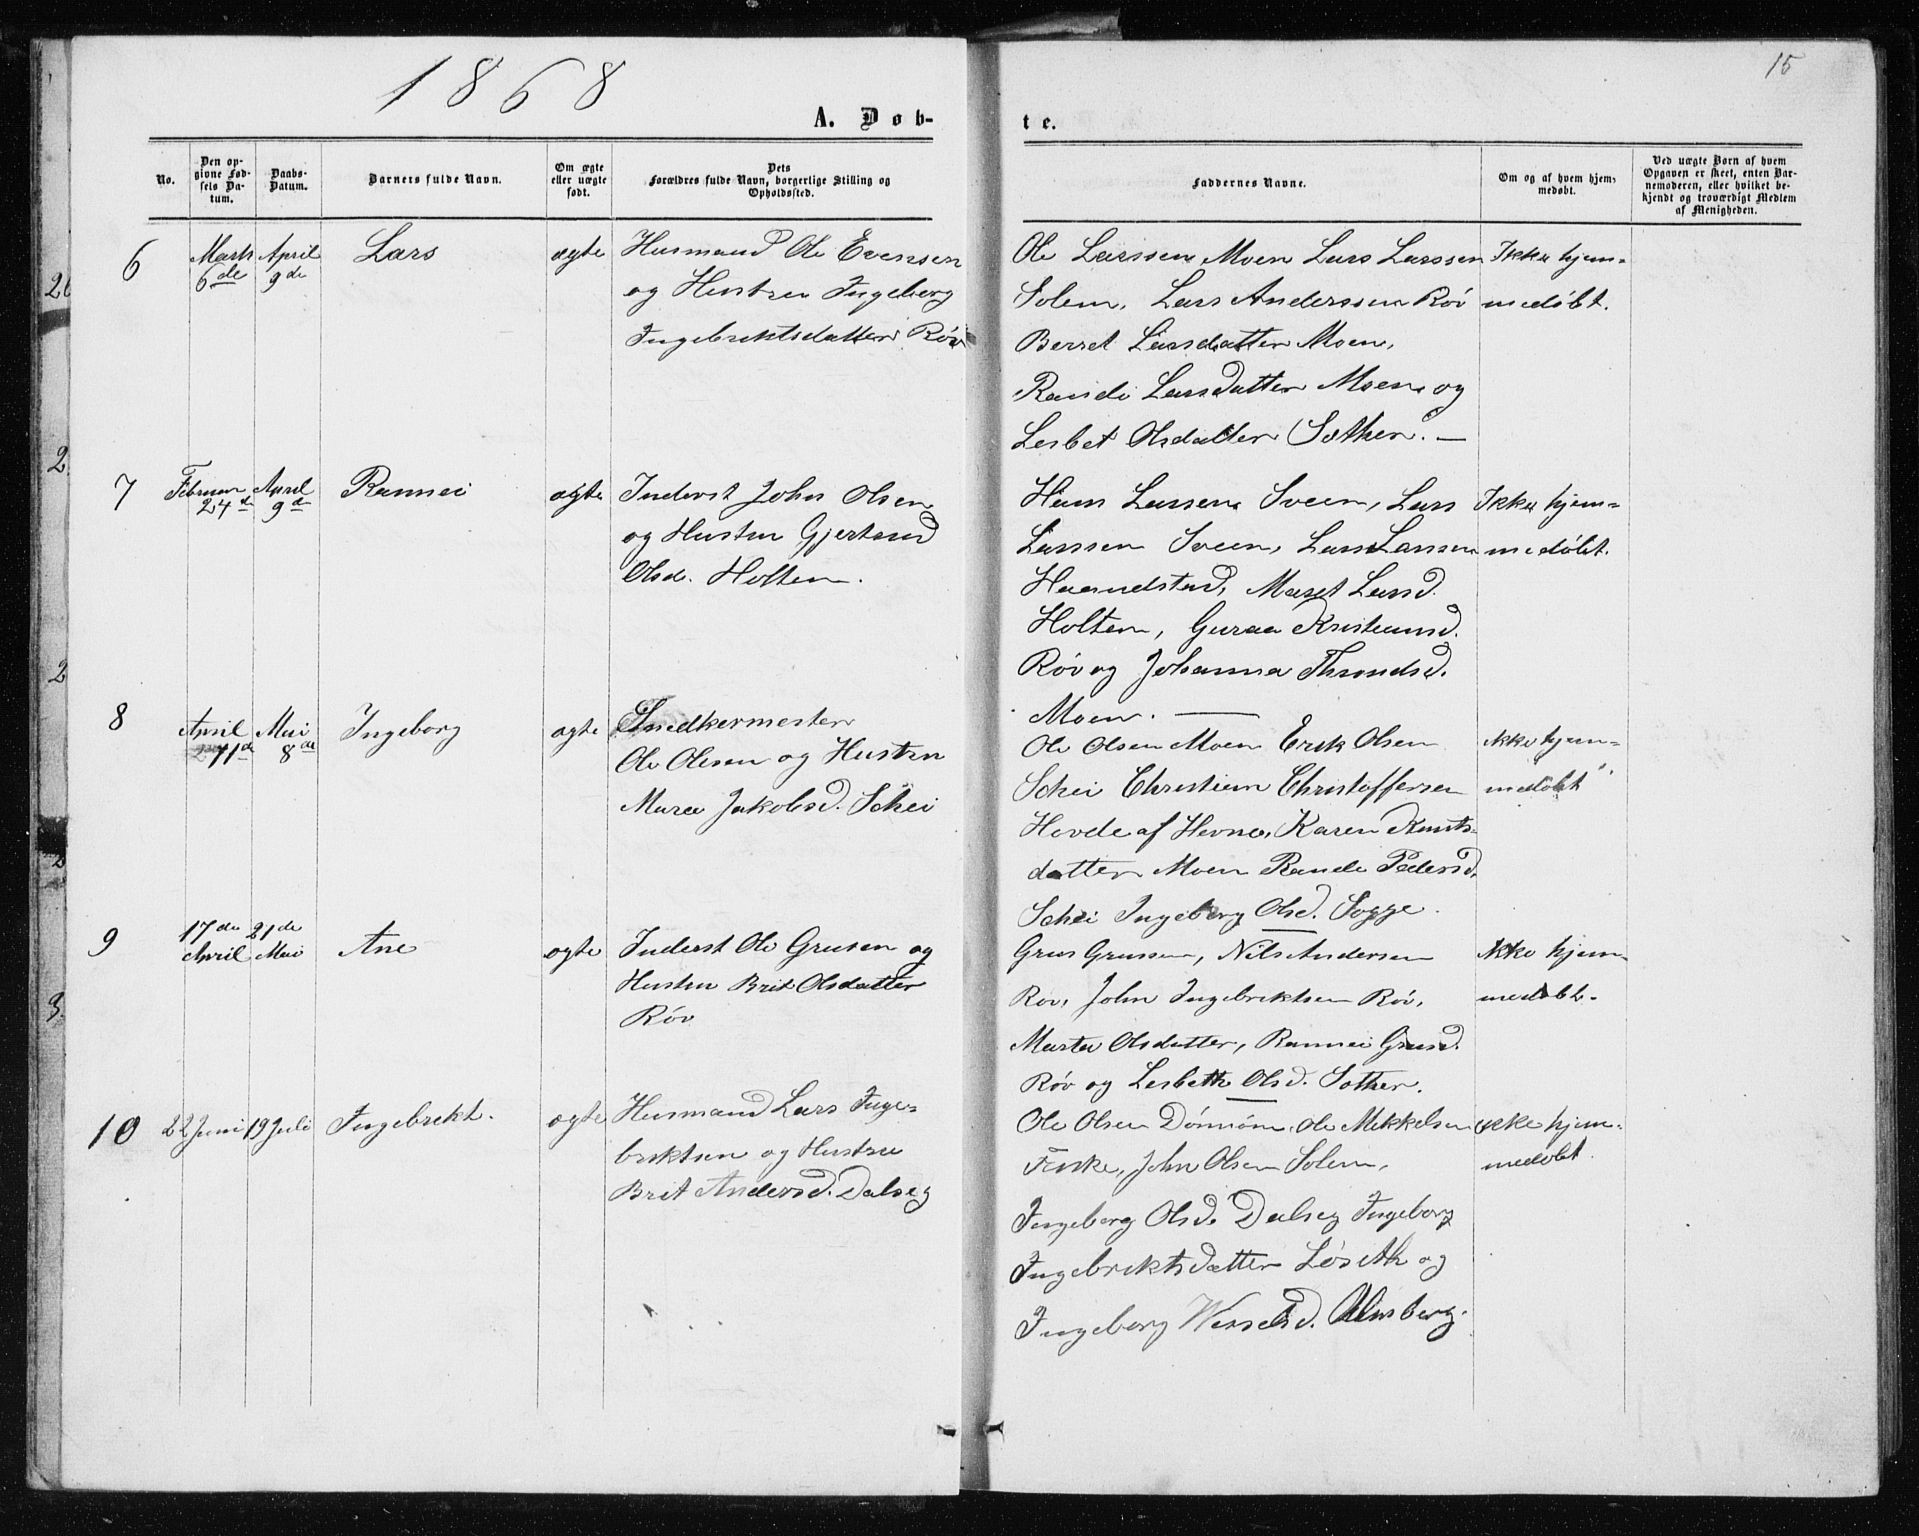 1868
15
A. Døb-
te.
No.
Den op-
givne Fød-
sels Da-
tum.
Daabs-
Datum.
Barnets fulde Navn.
Om ægte
eller uægte
født.
Dets
Forældres fulde Navn, borgerlige Stilling og
Opholdssted.
Faddernes Navne.
Om og af hvem hjem-
medøbt.
Ved uægte Børn af hvem
Opgaven er skeet, enten Bar-
nemoderen, eller hvilket be-
kjendt og troværdigt Medlem
af Menigheden.
6
Marts
6de
April
9de
Lars
ægte
Husmand Ole Evensen
og Hustru Ingeborg
Ingebriktsdatter Røv
Ole Larssen Moen Lars Larssen
Solem, Lars Anderssen Røv
Berret Larsdatter Moen,
Randi Larsdatter Moen og
Lesbet Olsdatter Sæther. —
Ikke hjem-
medøbt.
7
Februar
24d
April
9d
Rannei
ægte
Inderst John Olsen
og Hustru Gjertrud
Olsd. Holten.
Hans Larsen Sveen, Lars
Larssen Sveen, Lars Larssen
Haandstad, Maret Larsd.
Holten, Guraa Kristiansd.
Røv og Johanna Throndsd.
Moen. —
Ikke hjem-
medøbt.
8
April
11d
Mai
8de
Ingeborg
ægte
Snedkermester
Ole Olsen og Hustru
Marea Jakobsd. Schei
Ole Olsen Moen Erik Olsen
Schei Christian Christoffersen
Hovde af Hevne, Karen Knuts-
datter Moen Rande Pedersd.
Schei Ingeborg Olsd. Sogge.
ikke hjem-
medøbt
9
17de
April
21de
Mai
Ane
ægte
Inderst Ole Grusen og
Hustru Brit Olsdatter
Røv
Grus Grussen, Nils Andersen
Røv, John Ingebriktsen Røv,
Marta Olsdatter, Rannei Grusd.
Røv og Lesbeth Olsd. Sæther.
ikke hjem-
medøbt.
10
22 Juni
19 Juli
Ingebrikt.
ægte
Husmand Lars Inge-
briktsen og Hustru
Brit Andersd. Dalseg
Ole Olsen Dønnem, Ole Mikkelsen
Finke, John Olsen Solem,
Ingeborg Olsd. Dalseg Ingeborg
Ingebriktsdatter Løseth og
Ingeborg Wesselsd. Almberg.
ikke hjem-
medøbt.